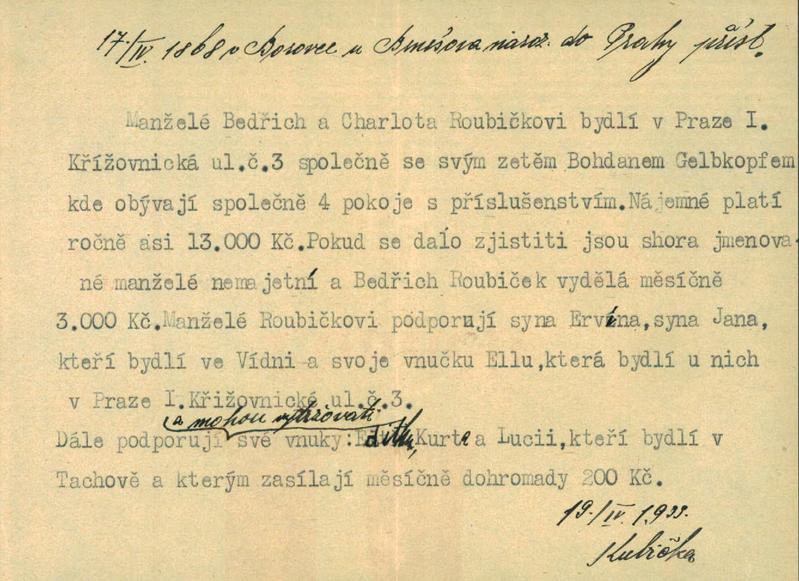 17./IV. 1868 v Borovec u Benešova naroz. do Prahy přísl.
Manželé Bedřich a Charlota Roubičkovi bydlí v Praze I.
Křížovnická ul.č.3 společně se svým zetěm Bohdanem Gelbkopfem
kde obývají společně 4 pokoje s příslušenstvím.Nájemné platí
ročně asi 13.000 Kč.Pokud se dalo zjistiti jsou shora jmenova-
né manželé nemajetní a Bedřich Roubiček vydělá měsíčně
3.000 Kč.Manželé Roubičkovi podporují syna Ervína,syna Jana,
kteří bydlí ve Vídni a svoje vnučku Ellu,která bydlí u nich
v Praze I.Křižovnické ul.č.3.
a mohou vydržovati
Dále podporují své vnuky:Editu,Kurta a Lucii,kteří bydlí v
Tachově a kterým zasílají měsíčně dohromady 200 Kč.
19./IV. 1933.
Kubička